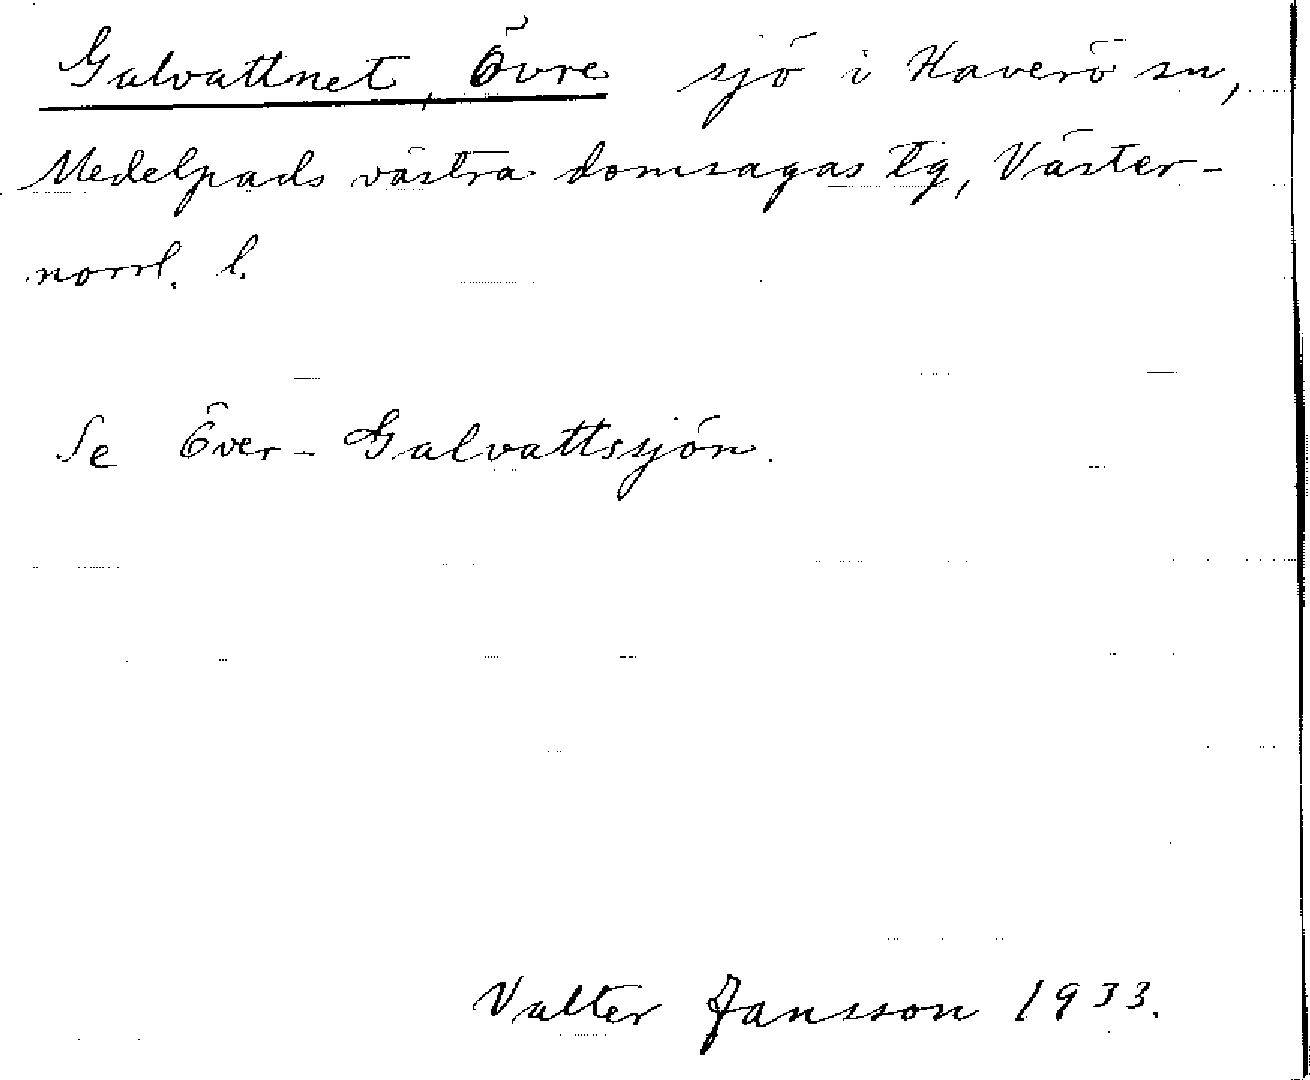 Galvattnet, Övre sjö i Haverö sn,
Medelpads västra domsagas tg, Väster-
norrl. l.
Se Över-Galvattssjön.
Valter Jansson 1933.